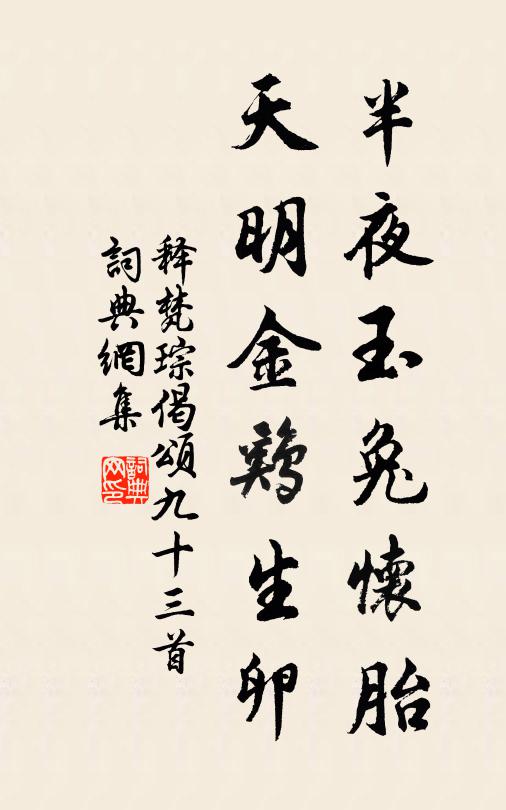 半夜玉兔懷胎
天明金鷄生卵
释梵琮偈頌九十三首
詞典網集
詞典网印